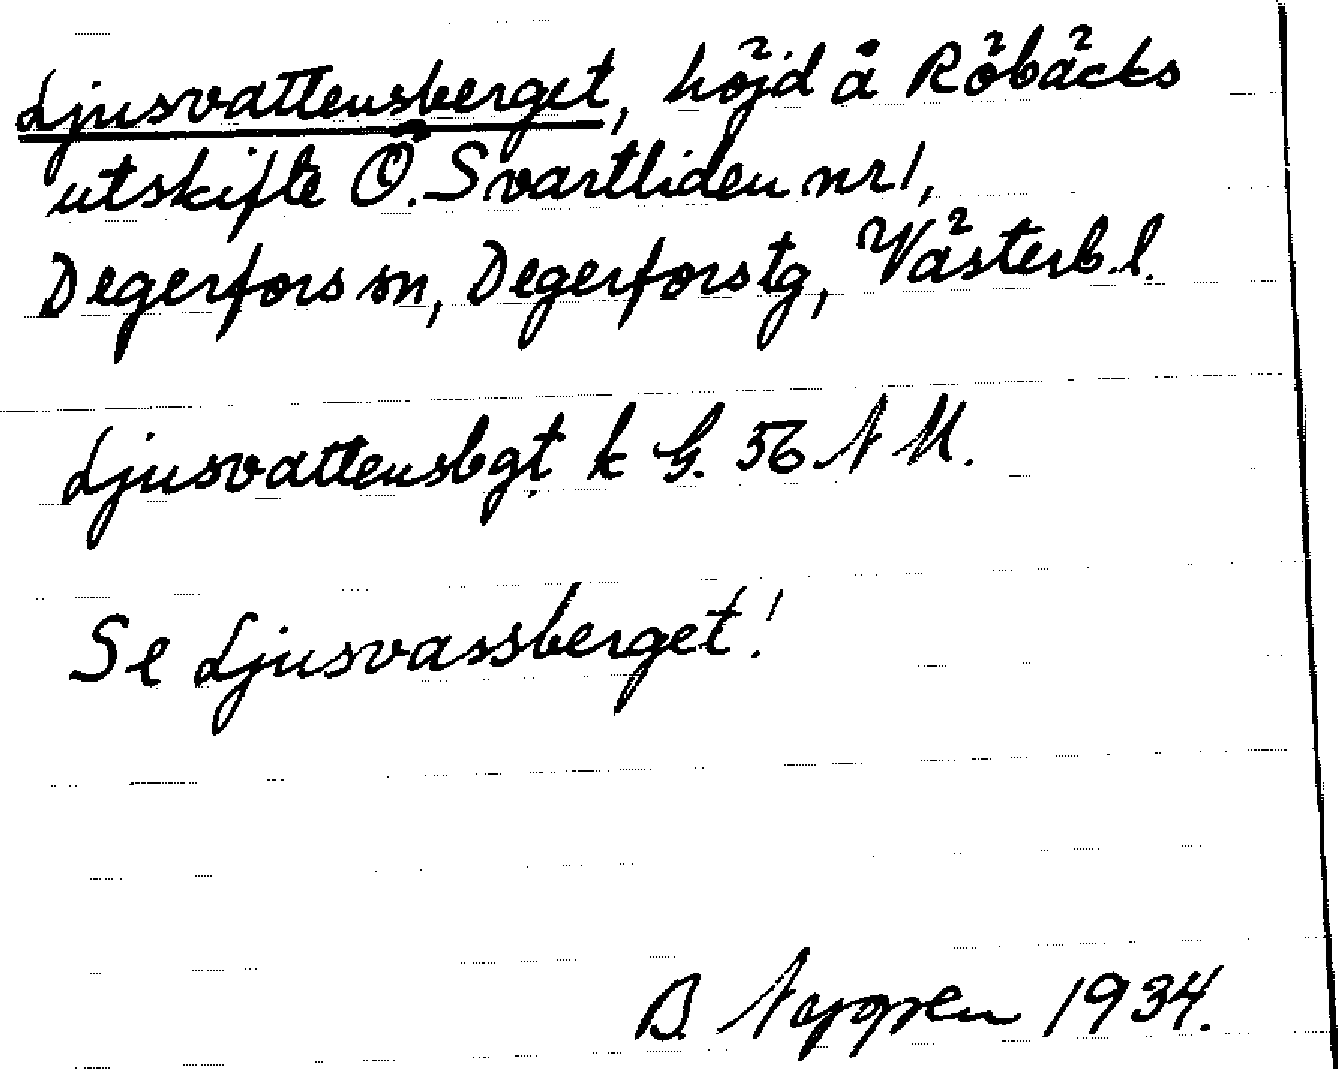 Ljusvattensberget, höjd å Röbäcks
utskifte Ö. Svartliden nr 1,
Degerfors sn, Degerfors tg, Västerb. l.
Ljusvattensbgt k G. 56 N M.
Se Ljusvassberget!
B. 1934.